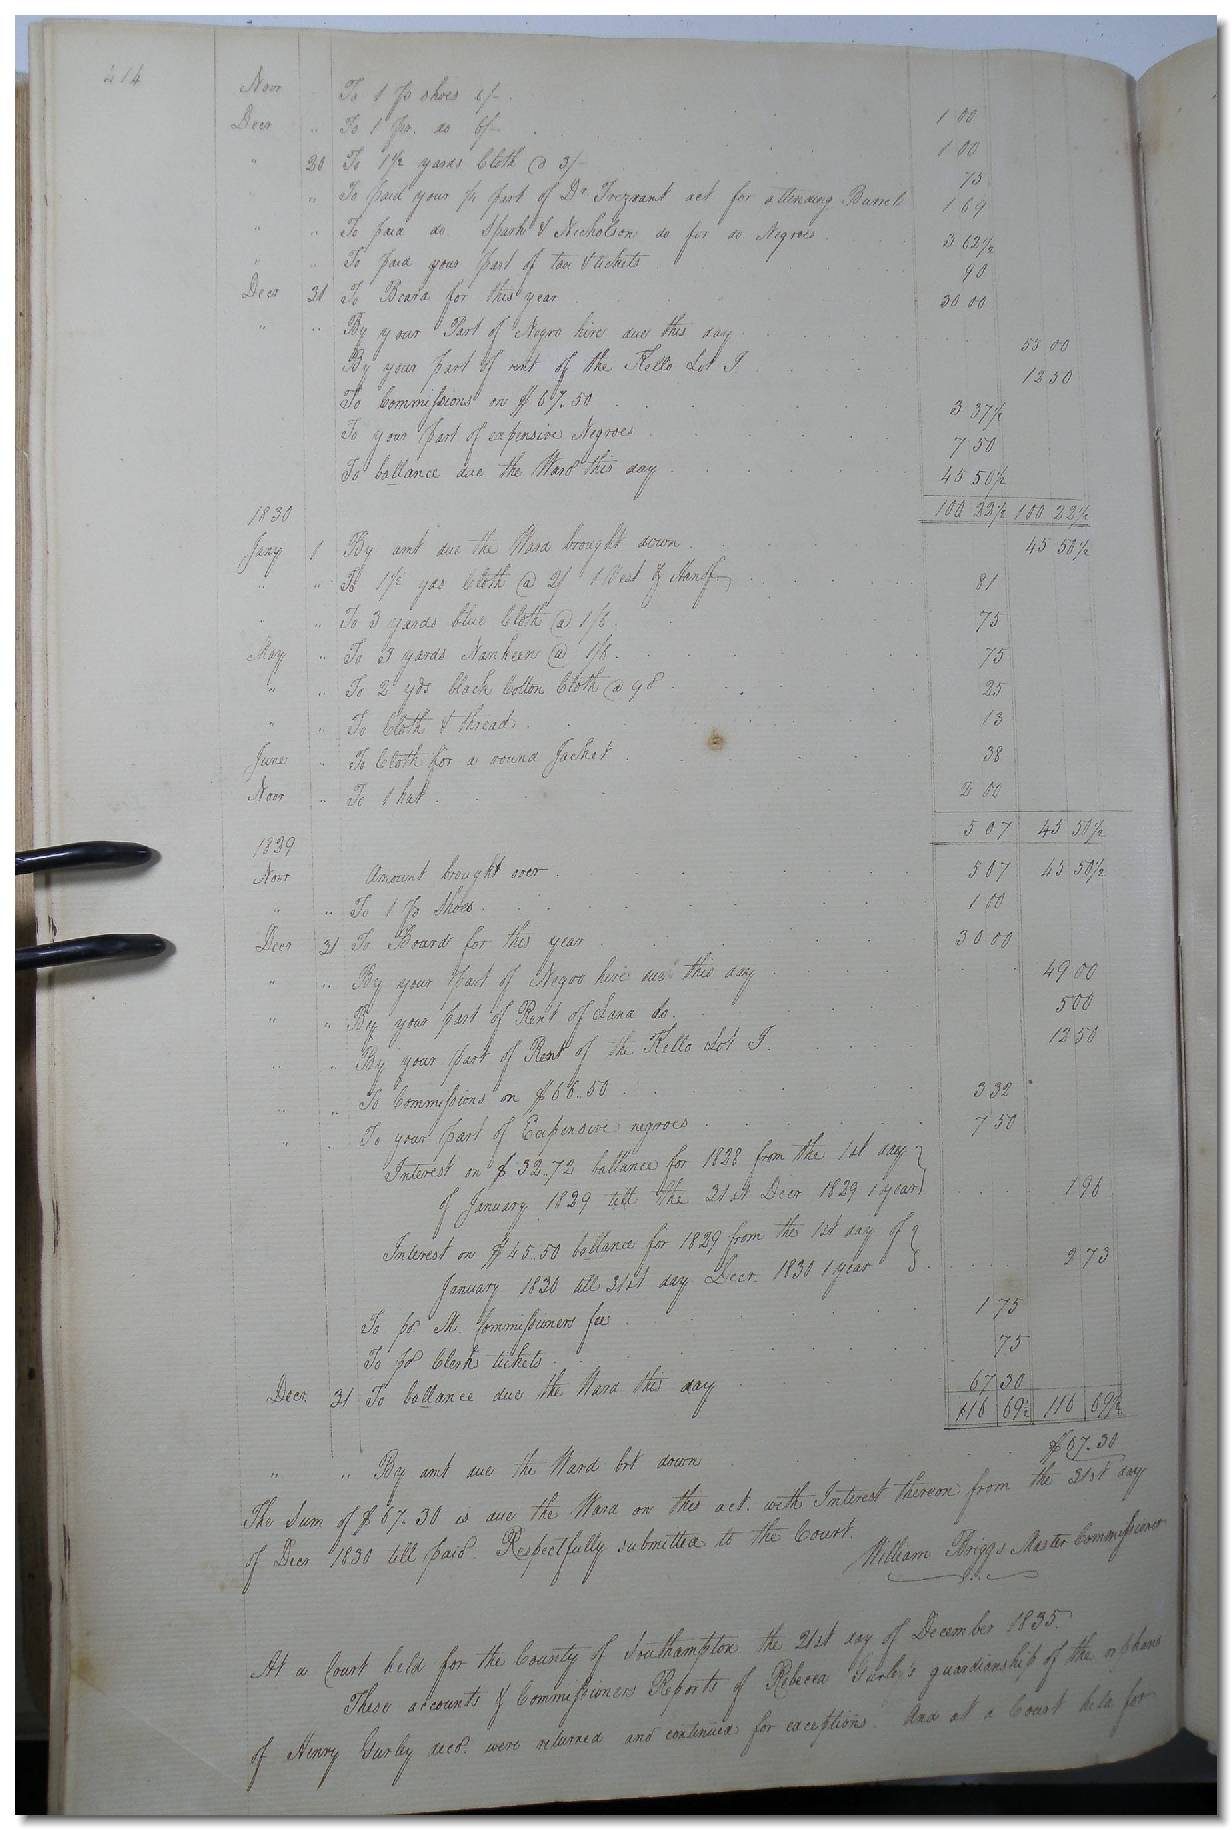 214
Novr To 1 pr shoes 6/-
Decr " To 1 pr. do 6/- 1 00
" 20 To 1½ yards Cloth @ 3/- 1 00
" To paid your ½ part of Dr Trezvant act for attending Burrell 75
" " To paid do. Spark & Nicholson do for do Negroes 1 69
" " To paid your part of tax & tickets 3 62½
Decr 31 To Board for this year 90
" " By your Part of Negro hire due this day 30 00
By your part of rent of the Kello Lot I 55 00
To Commissions on $67.50 12 50
To your part of expensive Negroes 3 37½
To ballance due the Ward this day 7 50
45 50½
1830 100 22½ 100 22½
Jany 1 By amt due the Ward brought down 45 50½
" " To 1½ yds Cloth @ 2/ 1 Vest & Hanf 81
" To 3 yards blue Cloth @ 1/6 75
May " To 3 yards Nankeen @ 1/6 75
" " To 2 yds black Cotton Cloth @ 9d 25
" " To Cloth & thread 13
June " To Cloth for a round Jacket 38
Novr " To 1 hat 2 00
5 07 45 50½
1839
Novr Amount brought over 5 07 45 50½
" " To 1 pr shoes 1 00
Decr 31 To Board for this year 30 00
" " By your part of Negro hire due this day 49 00
" " By your part of Rent of Land do. 5 00
" " By your part of Rent of the Kello Lot I. 12 50
" " To Commissions on $66..50 3 32
" " To your part of Expensive negroes 7 50
Interest on $32..72 ballance for 1828 from the 1st day
of January 1829 till the 31st Decr 1829 1 year 1 96
Interest on $45..50 ballance for 1829 from the 1st day of
January 1830 till 31st day Decr. 1830 1 year 2 73
To pd M. Commissioners fee 1 75
To pd Clerks tickets 75
Decr. 31 To ballance due the Ward this day 67 30
116 69½ 116 69½
" " By amt due the Ward brt down $67..30
The Sum of $67.30 is due the Ward on this act. with Interest thereon from the 31st day
of Decr 1830 till paid. Respectfully submitted to the Court.
William Briggs Master Commissioner
At a Court held for the County of Southampton the 21st day of December 1835.
These accounts & Commissioners Reports of Rebecca Gurley's guardianship of the orphans
of Henry Gurley decd. were returned and continued for exceptions. And at a Court held for